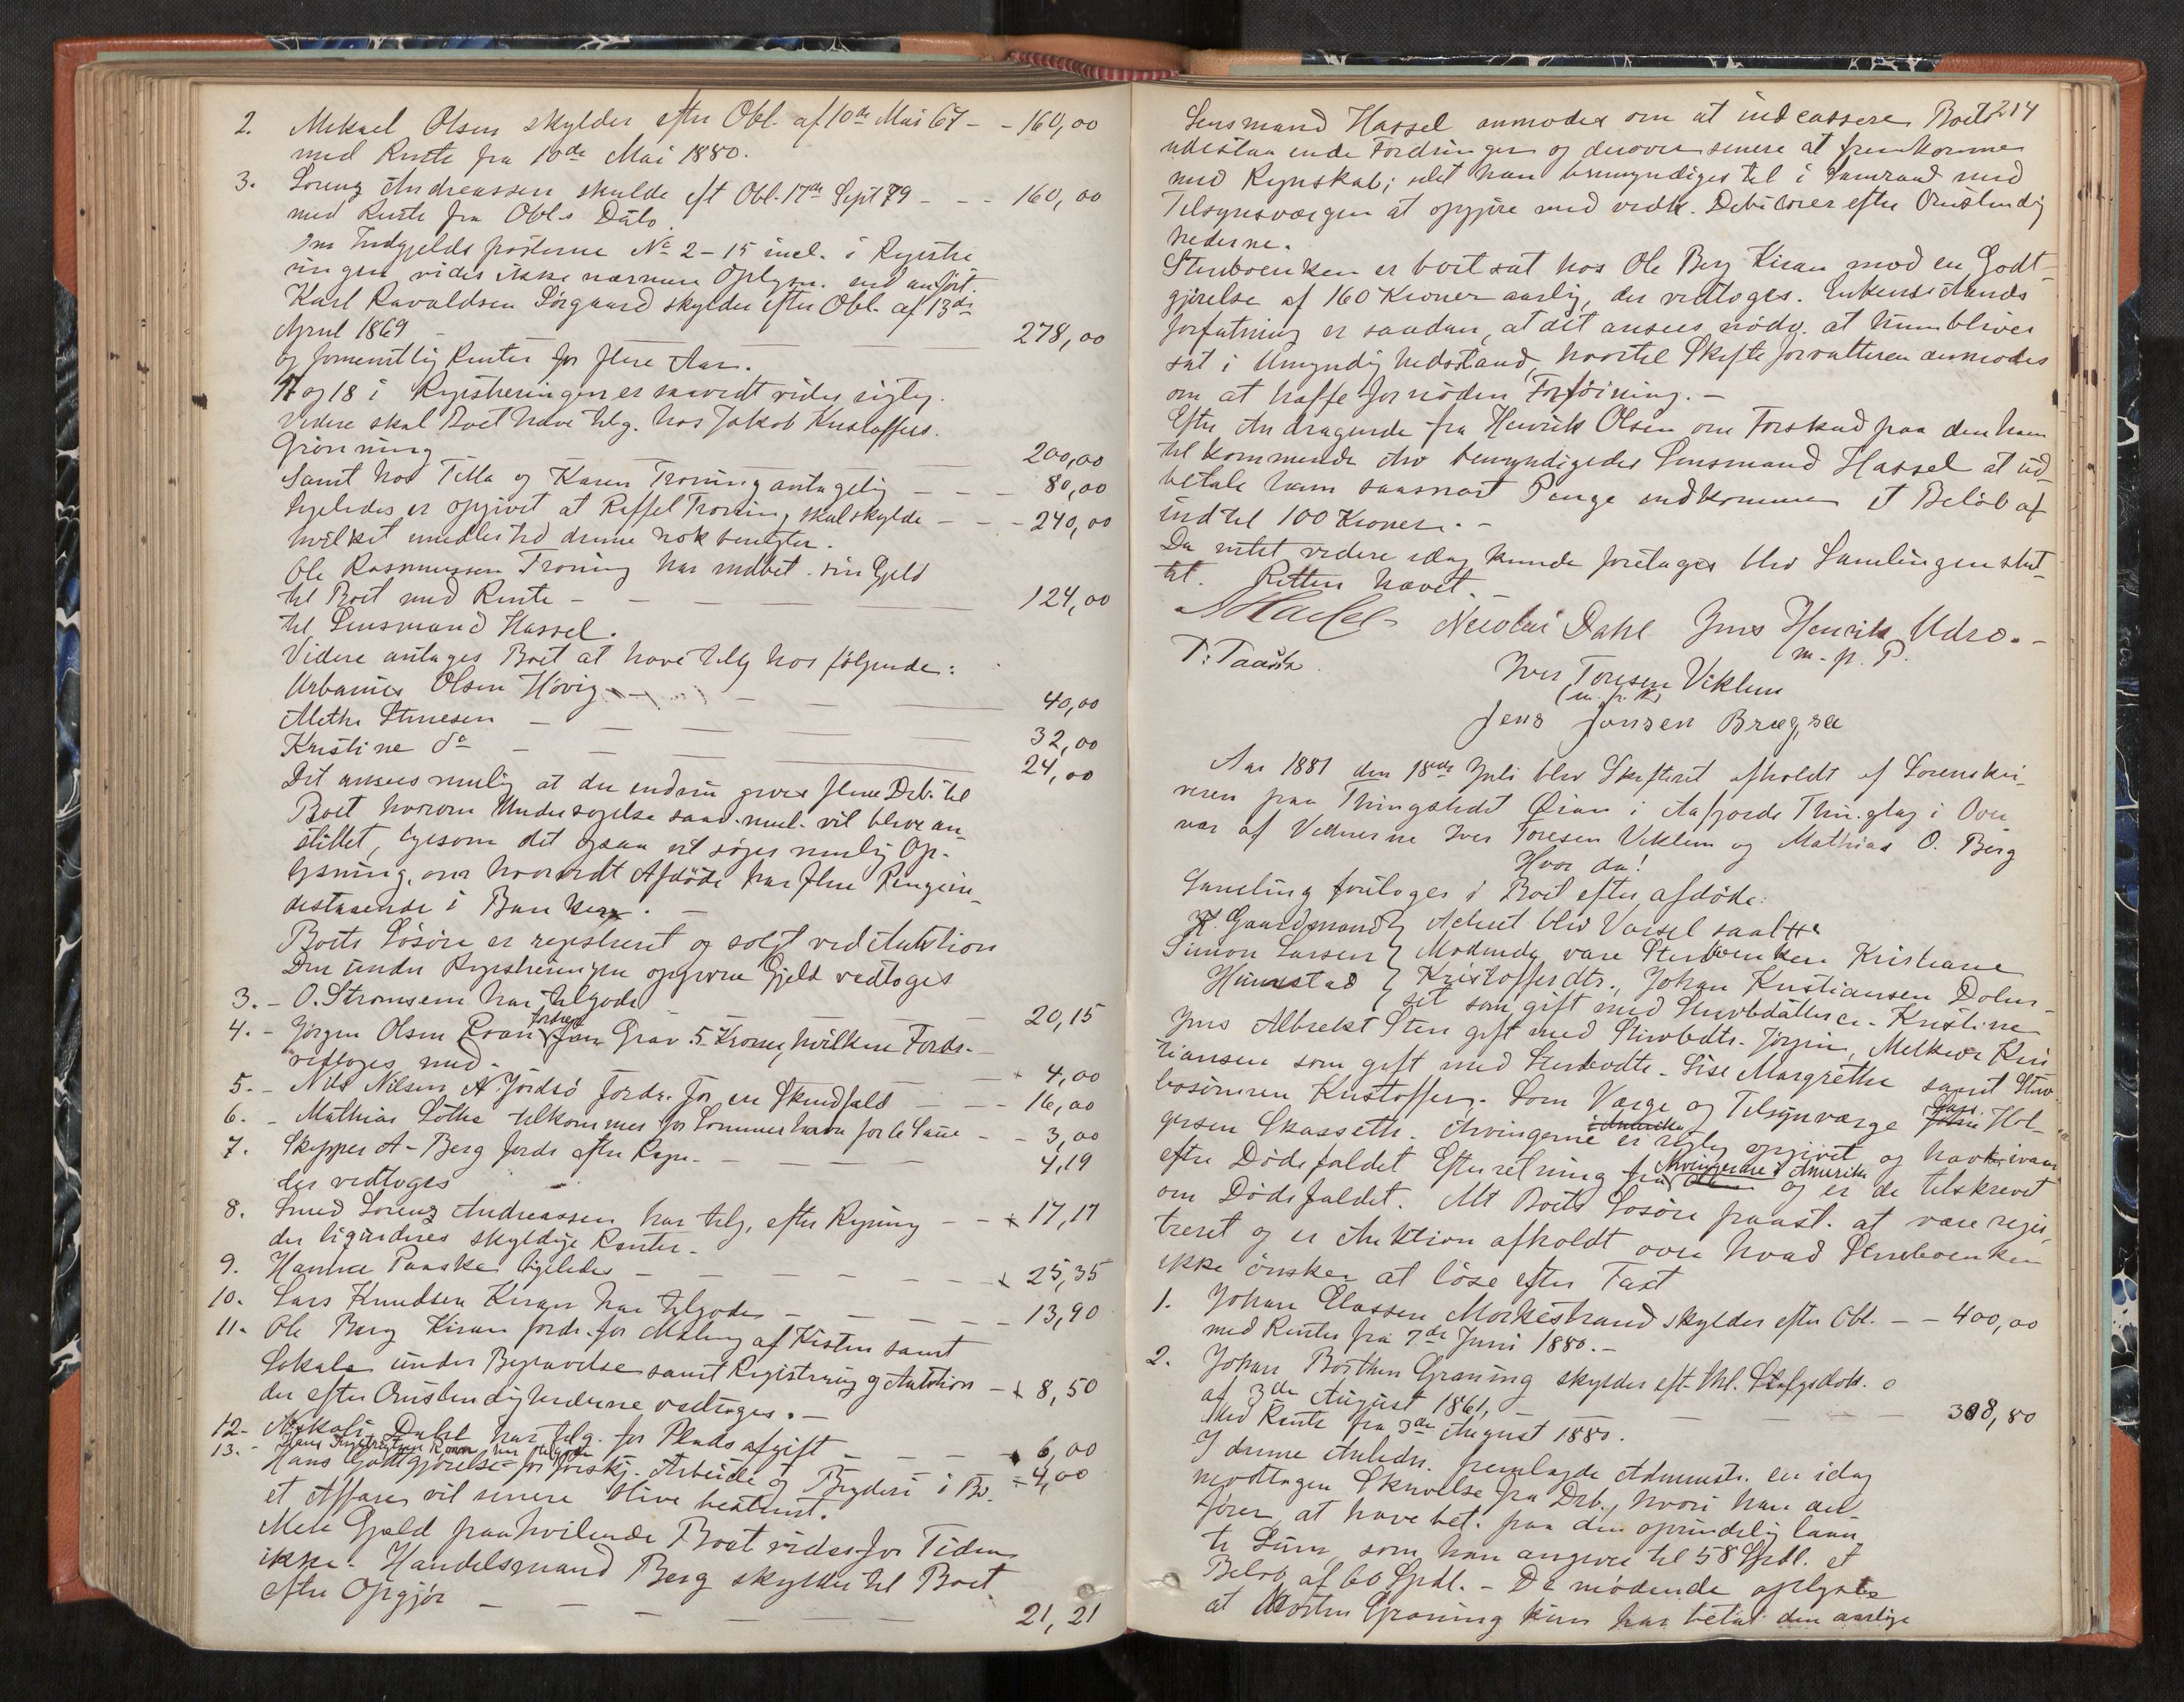 2. Mekael Olsen skylder efter Obl. af 10de Mai 67 - - 160,00
med Rente fra 10de Mai 1880.
3. Lorenz Andreassen skulde eft Obl. 17de Sept 79 - - - 160,00
med Rente fra Obl.s Dato.
Om Indgjeldsposterne No 2-15 incl. i Registre
ringen vides ikke nærmere Oplysn. end anført.
Karl Ravaldsen Sørgaard skylder efter Obl. af 13de
April 1869 - 278,00
og formentlig Renter for flere Aar.
17 og 18 i Registreringen er saavidt vides rigtig.
Videre skal Boet have tilg. hos Jakob Kristoffers.
Grönning 200,00
Samt hos Tilla og Karen Troning antagelig - - - 80,00
ligeledes er opgivet at Raffel Troning skal skylde - - - 240,00
hvilket imidlertid denne nok benegter.
Ole Rasmussen Troning har indbet. sin Gjeld
til Boet med Rente - 124,00
til Lensmand Hassel.
Videre antages Boet at have tilg hos følgende:
Urbanus Olsen Hövig - 40,00
Methe Struesen - 32,00
Kristine do - 24,00
Det ansees mulig at der endnu gives flere Deb. til
Boet hvorom Undersøgelse saav. mul. vil blive an-
stillet, ligesom det ogsaa vil søges mulig Op-
lysning, om hvorvidt Afdøde har flere Penge in-
destaaende i Banken. -
Boets Løsøre er registreret og solgt ved Auktion
Den under Registreringen opgivne Gjeld vedtoges
3. - O. Strømsem har tilgode 20,15
4. - Jørgen Olsen Roan fordrer for Grav 5 Kroner, hvilken Fordr.
vedtoges med - 4,00
5. - Nils Nilsen A. Jørdsö fordr. for en Skindfeld - - - 16,00
6. - Mathias Løthe tilkommer for Sommerhavn for 6 Saue - - 3,00
7. Skipper A - Berg fordr efter Regn. - 4,19
der vedtoges
8. Smed Lorenz Andreassen har tilg. efter Regning - - 17,17
der ligesdenes skyldige Renter.
9. Hanna Paaske ligeledes - 25,35
10. Lars Knudsen Kiran har tilgode - 13,90
11. Ole Berg Kiran fordr. for Maling af Kisten samt
Lokale under Begravelse samt Registrering og Auktion - 8,50
der efter Omstendighederne vedtoges. -
12. Nikolai Dahl har tilg. for Pladsafgift - 6,00
13. - Hans Fredriksen Roan har tilgode 4,00
Hans Godtgjørelse for forskj. Arbeide og Bryderi i Bo.
et Affares vil senere blive bestemt.
Mere Gjeld paahvilende Boet vides for Tiden
ikke. Handelsmand Berg skylder til Boet
efter Opgjør - 21,21
214
Lensmand Hassel anmodes om at indcassere Boets
udestaaende Fordringer og derover senere at fremkomme
med Regnskab; idet han bemyndiges til i Samraad med
Tilsynsværgen at opgjøre med vedk. Debitorer efter Omstendig
hederne.
Sterboenken er bortsat hos Ole Berg Kiran mod en Godt-
gjørelse af 160 Kroner aarlig, der vedtoges. Enkens Aands
forfatning er saadan, at det ansees nødv. at hun bliver
sat i Umyndighedsstand, hvortil Skifteforvalteren anmodes
om at træffe fornøden Forföining. -
Efter Andragende fra Henrik Olsen om Forskud paa den ham
tilkommende Arv bemyndigedes Lensmand Hassel at ud-
betale ham saasnart Penge indkommer et Beløb af
indtil 100 Kroner. -
Da intet videre idag kunde foretages blev Samlingen slut-
tet. Retten hævet.
Nicolai Dahl Jens Henrik Udro. -
m. p. P.
P. Paaske
Iver Toresen Viklem
(m. p. P.)
Jens Jonsen Brægsæ
Aar 1881 den 18de Juli blev Skifteret afholdt af Sorenskri-
veren paa Thingstedet Øian i Aafjords Thinglag i Over
vær af Vidnerne Iver Toresen Viklem og Mathias O. Berg
Hvor da!
Samling foretages i Boet efter afdøde:
Gaardmand Simon Larsen Hunnestad
Actuet blev Varsel saatte
Mødende vare Sterboenken Kristiane
Kristoffersdtr., Johan Kristiansen Dolm-
set som gift med Sterbodatteren - Kristine
Jens Albrekt Sten gift med Sterbodtr. Jørgine, Melkior Kris
tiansen som gift med Sterbodtr. Lise Margrethe samt Ster
bosönnen Kristoffer. - Som Værge og Tilsynsværge Lars Hol-
gersen Skasseth. Arvingerne er rigtig opgivet og har
efter Dødsfaldet Efterretning fra Arvingerne i Amerika og er de tilskrevet
om Dødsfaldet. Alt Boets Løsöre paast. at være regis-
treret og er Auktion afholdt over hvad Sterboenken
ikke ønsker at løse efter Taxt
1. Johan Elassen Morkestrand skylder efter Obl. - - 400,00
med Renter fra 7de Juni 1880. -
2. Johan Borthen Graning skylder eft. Obl.
af 3de August 1861, - 308,80
Med Rente fra 3de August 1880.
I denne Anledn. fremlagde Administr. en idag
modtagen Skrivelse fra Deb., hvori han an-
fører, at have bet. paa den oprindelig laan
te Sum, som han angiver til 58 Spdl. et
Beløb af 60 Spdl. - De mødende oplyste
at Morten Graning kun har betalt den aarlige